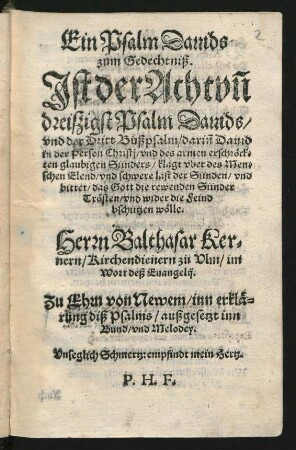 2
Ein Psalm Dauids
zum Gedechtniß.
Jst der Achtvñ
dreiszigst Psalm Dauids/
vnd der Dritt Bůßpsalm/ darin̄ Dauid
in der Person Christi/ vnd des armen erschröck-
ten glaubigen Sünders/ klagt vber des Men-
schen Elend/ vnd schwere last der Sünden/ vnd
bittet/ daß Gott die rewenden Sünder
Trösten/ vnd wider die Feind
bschützen wölle.
Herrn Balthasar Ker-
nern/ Kirchendienern zů Vlm/ im
Wort deß Euangelij.
Zu Ehrn von Newem/ inn erklä-
rung diß Psalms/ außgesetzt inn
Bund/ vnd Melodey.
Vnseglich Schmertz: empfindt mein Hertz.
P. H. F.